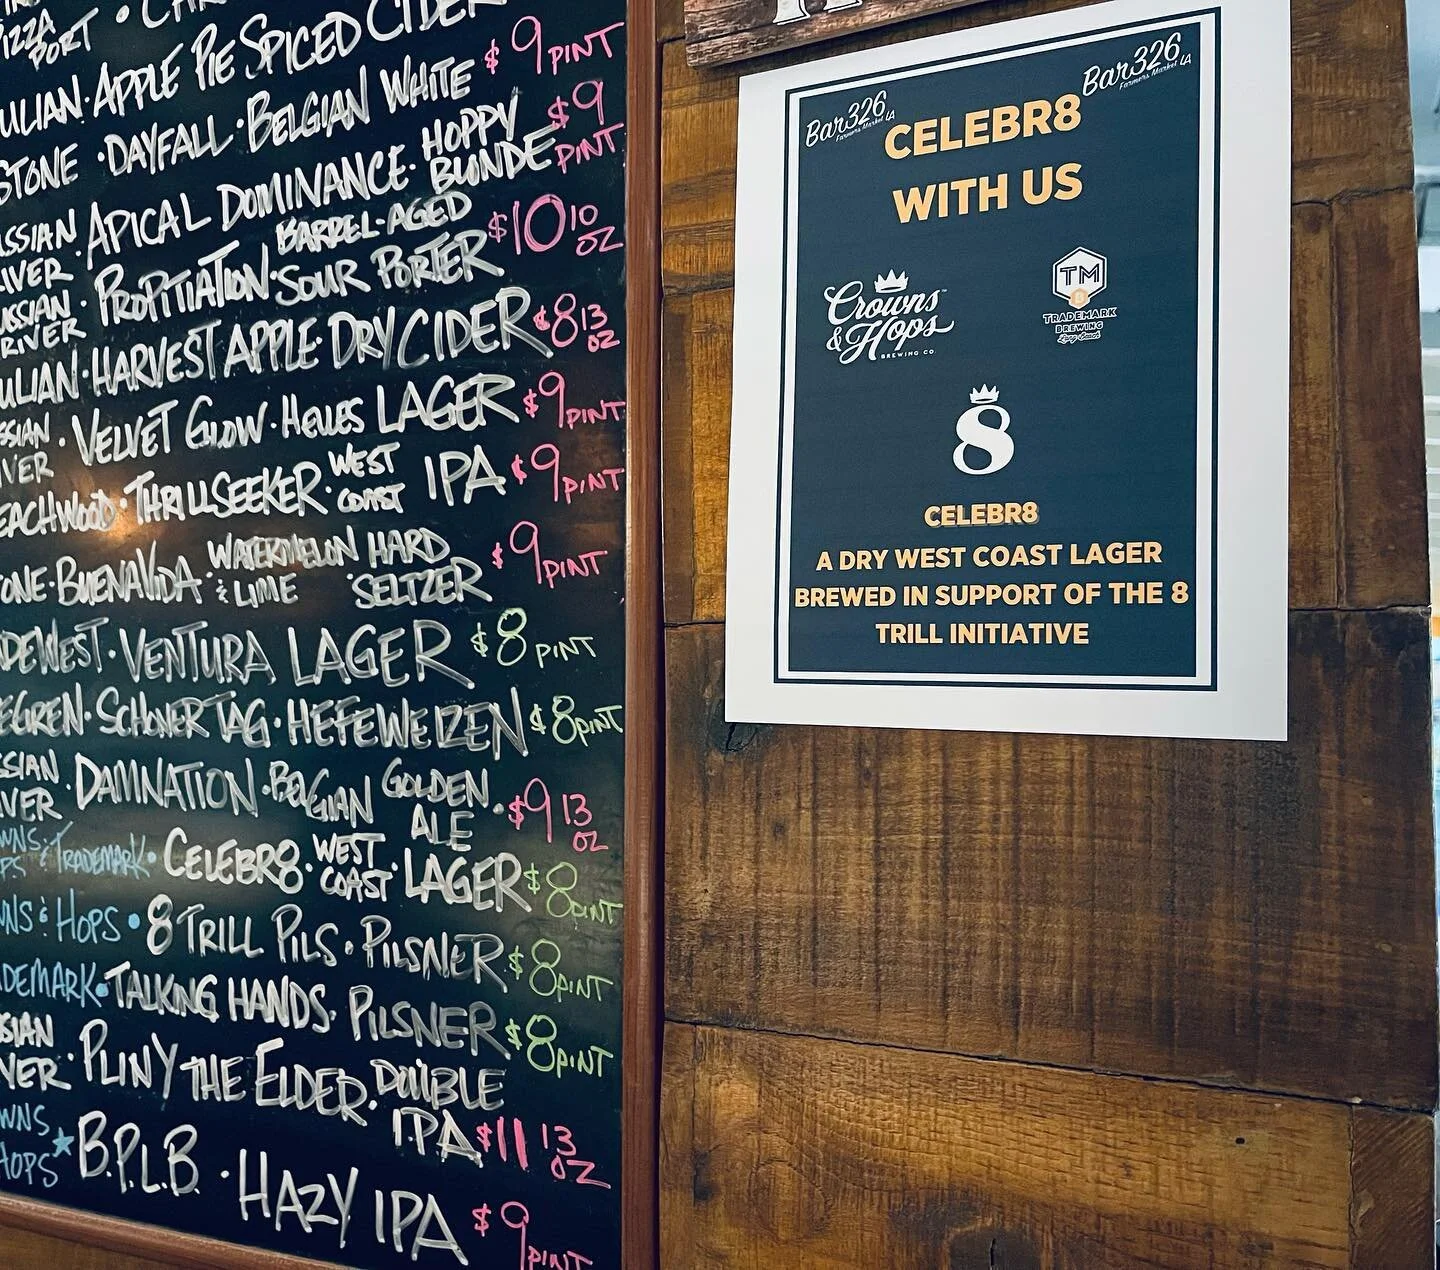 PIZZA PORT
APPLE PIE SPICED CIDER
STONE · DAYFALL · BELGIAN WHITE $9 PINT
APICAL DOMINANCE · HOPPY BLONDE $9 PINT
PROPITIATION · BARREL-AGED SOUR PORTER $10 10 OZ
HARVEST APPLE · DRY CIDER $8 13 OZ
VELVET GLOW · HELLES LAGER $9 PINT
THRILLSEEKER · WEST COAST IPA $9 PINT
BUENAVIDA · WATERMELON & LIME HARD SELTZER $9 PINT
VENTURA LAGER $8 PINT
SCHONER TAG · HEFEWEIZEN $8 PINT
DAMNATION · BELGIAN GOLDEN ALE · $9 13 OZ
& TRADEMARK · CELEBR8 · WEST COAST · LAGER $8 PINT
& HOPS · 8 TRILL PILS · PILSNER $8 PINT
TALKING HANDS · PILSNER $8 PINT
PLINY THE ELDER · DOUBLE IPA $11 13 OZ
B.P.L.B. · HAZY IPA $9 PINT
Bar326
Farmers Market LA
Bar326
Farmers Market LA
CELEBR8
WITH US
Crowns & Hops
BREWING CO
TM
TRADEMARK
BREWING
Long Beach
8
CELEBR8
A DRY WEST COAST LAGER
BREWED IN SUPPORT OF THE 8
TRILL INITIATIVE